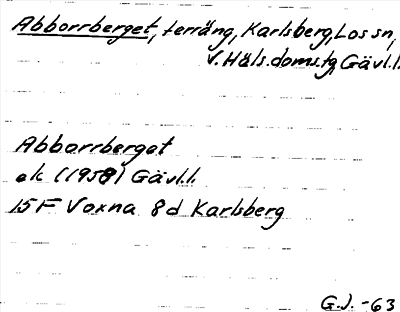 Abborrberget, terräng, Karlsberg, Los sn,
V. Häls. doms.tg, Gävl.l.
Abborrberget
ek (1958) Gävl.l.
15F Voxna 8d Karlsberg
G.J. -63